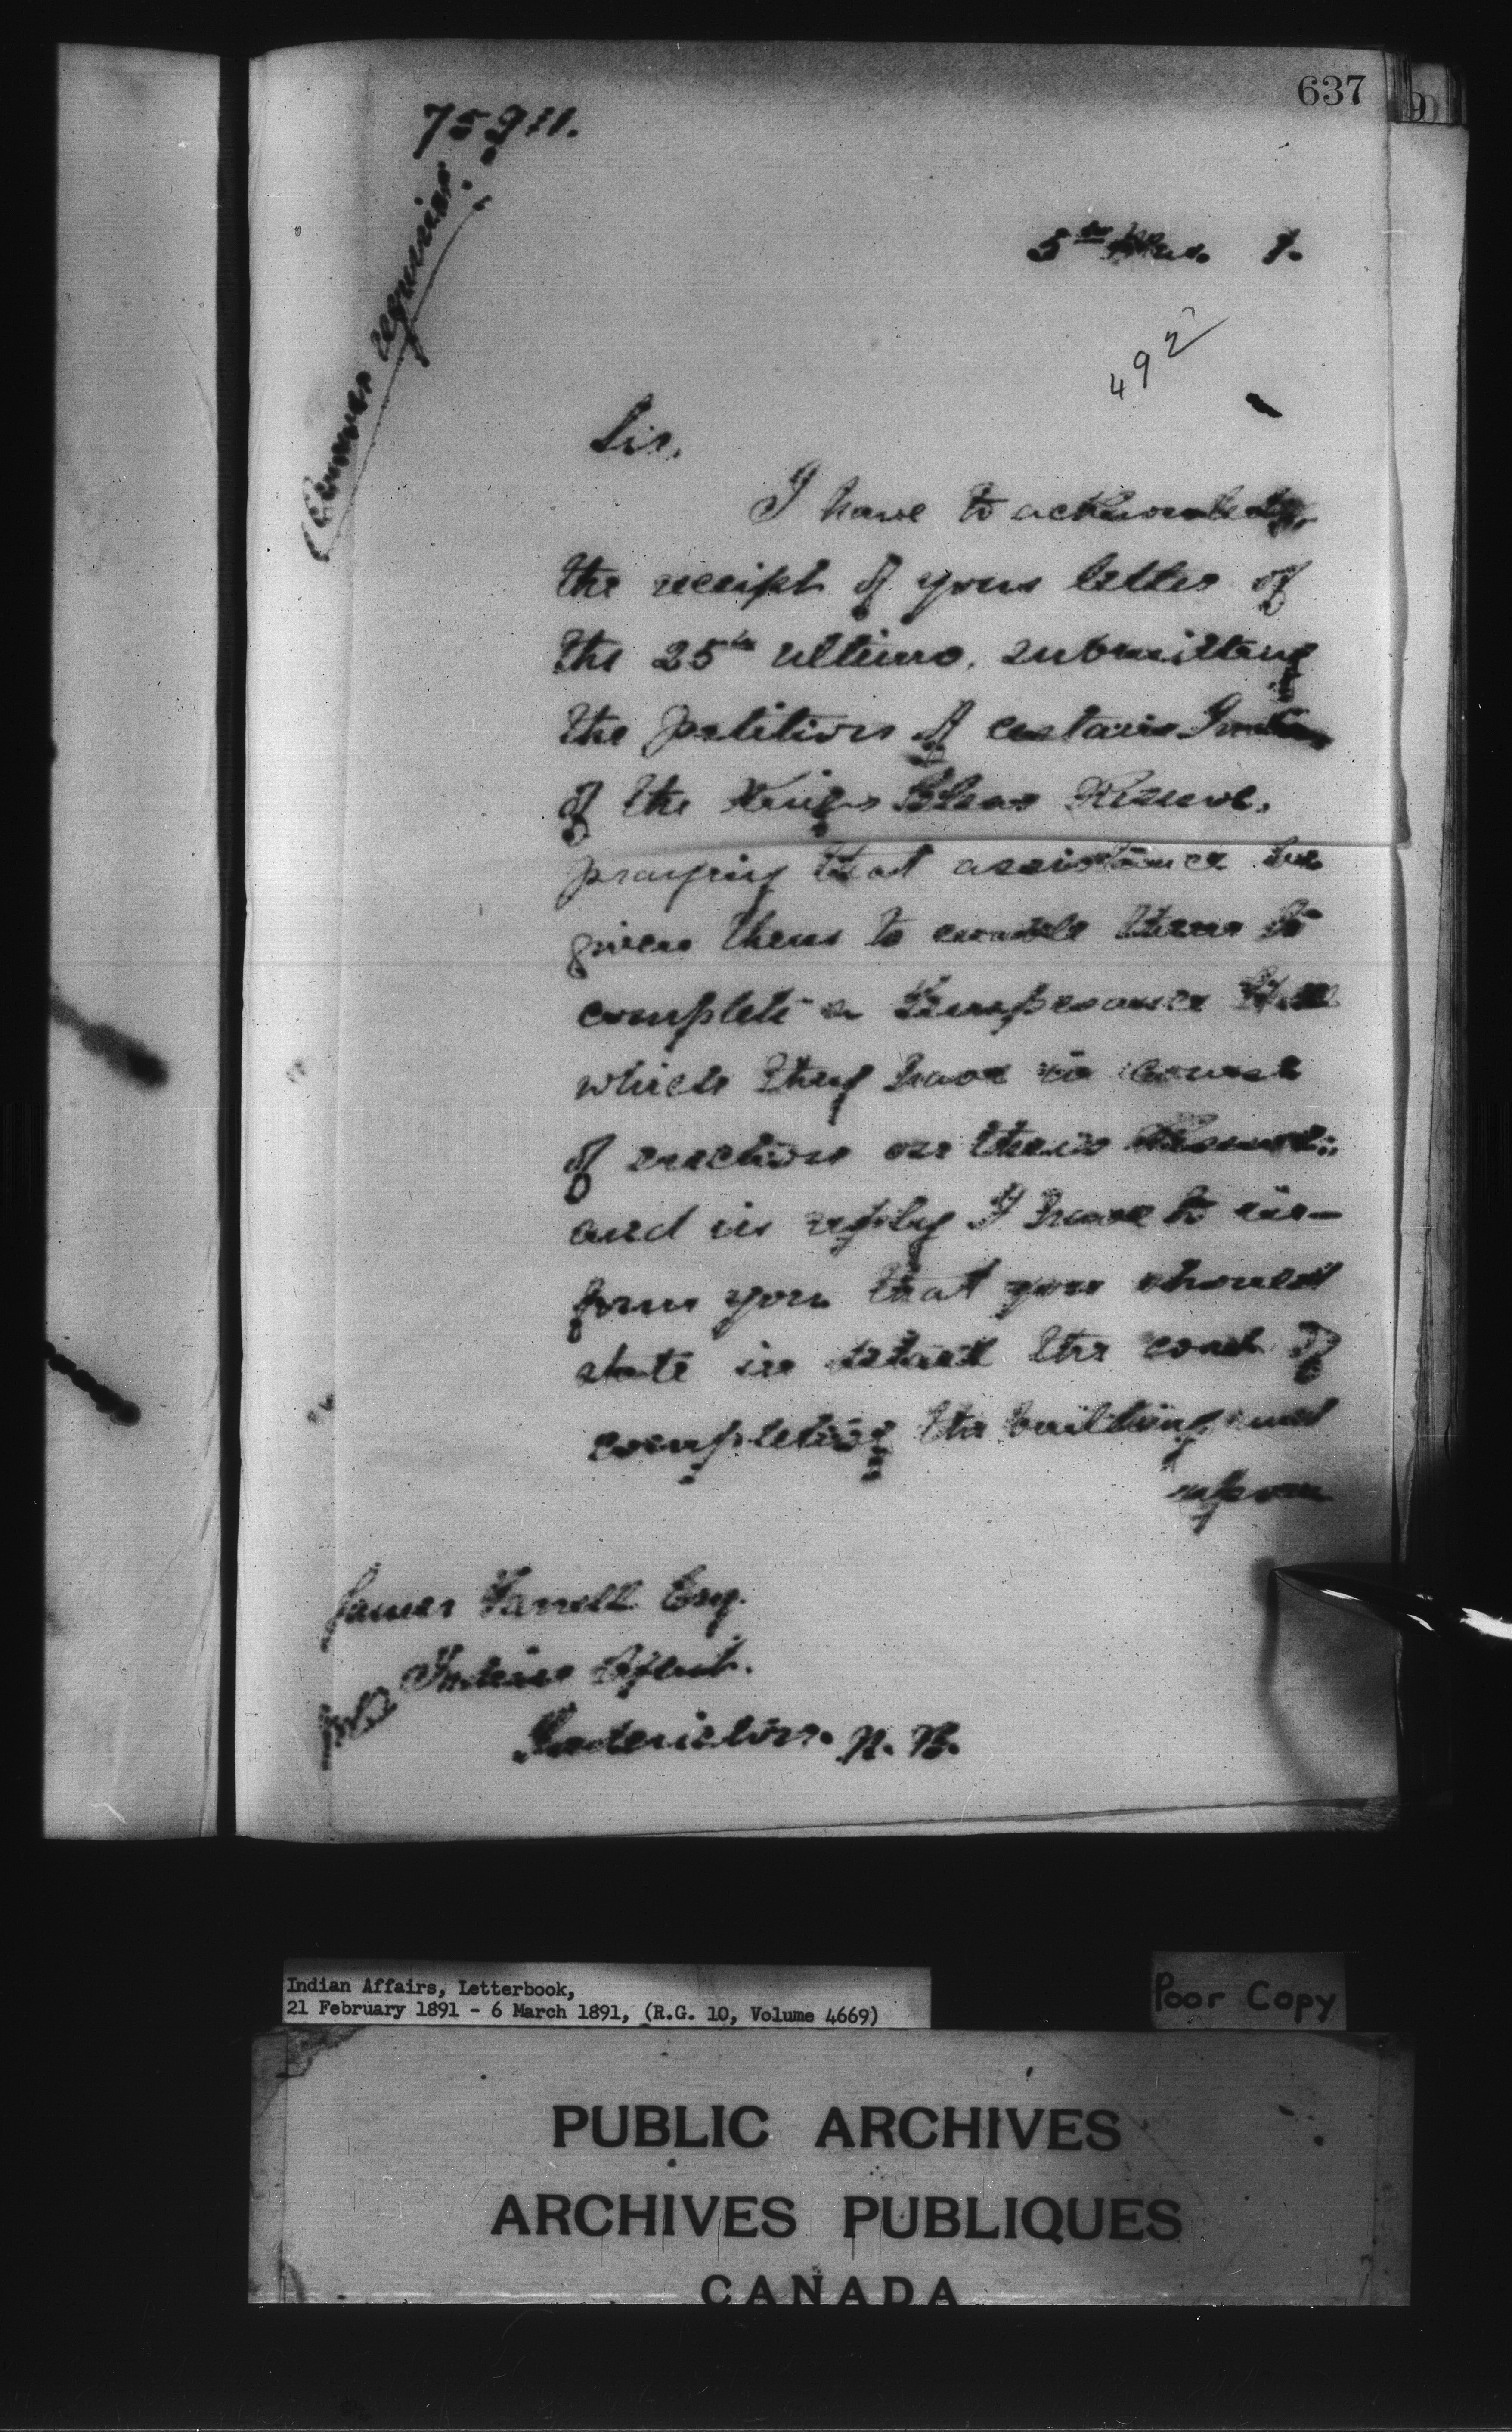 637
75911.
(Answer required.)
5th Mar. 1.
492
Sir,
I have to acknowledge
the receipt of your letter of
the 25th ultimo, submitting
the petition of certain Indians
of the Kings Clear Reserve,
praying that assistance be
given them to enable them to
complete a Temperance Hall
which they have in course
of erection on their Reserve;
and in reply I have to in-
form you that you should
state in detail the cost of
completing the building and
upon
James Farrell Esq.
Indian Agent.
Fredericton. N. B.
Indian Affairs, Letterbook,
21 February 1891 - 6 March 1891, (R.G. 10, Volume 4669)
Poor Copy
PUBLIC ARCHIVES
ARCHIVES PUBLIQUES
CANADA